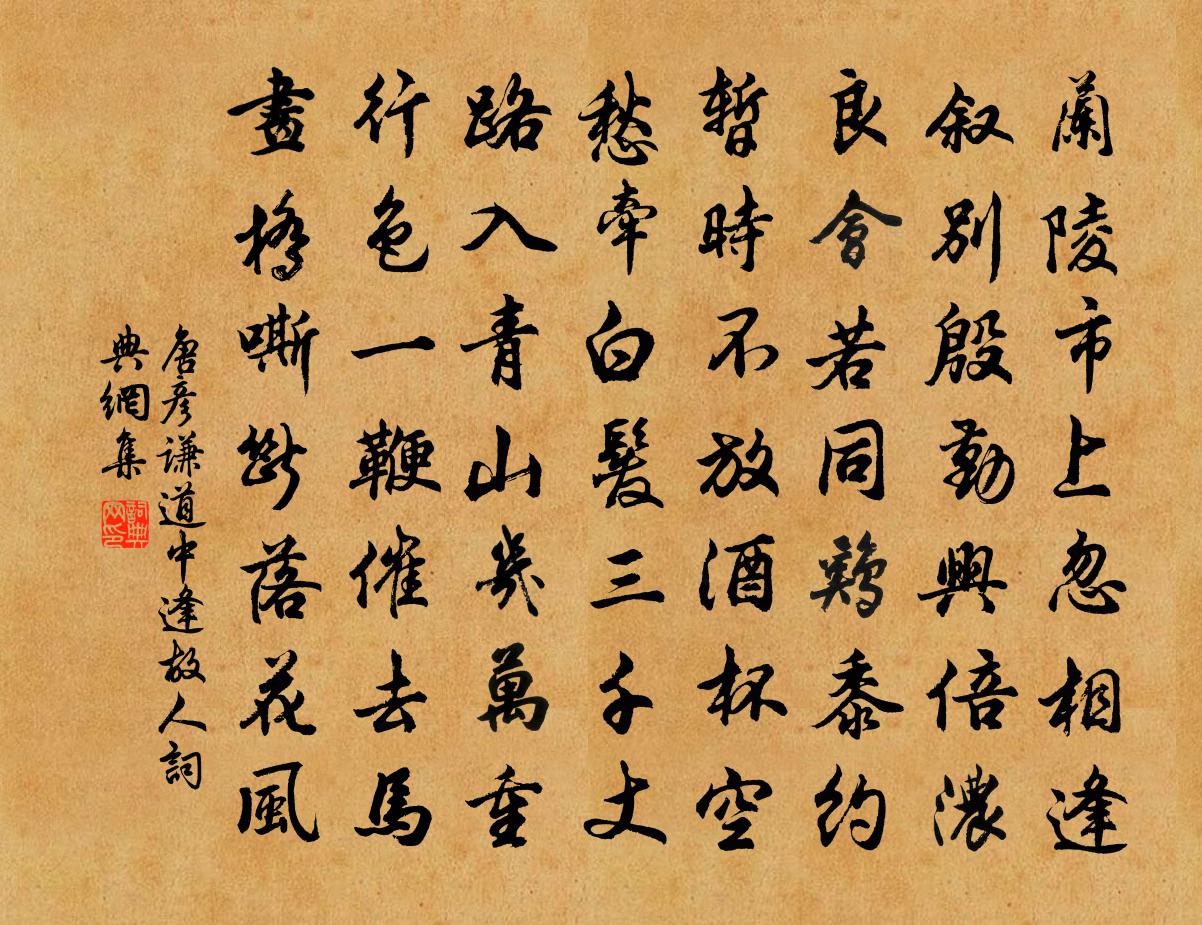 蘭陵市上忽相逢
叙別殷勤興倍濃
良會若同鷄黍約
暫時不放酒杯空
愁牽白髮三千丈
路入青山幾萬重
行色一鞭催去馬
畫橋嘶斷落花風
唐彦謙道中逢故人詞
典網集
詞典
网印